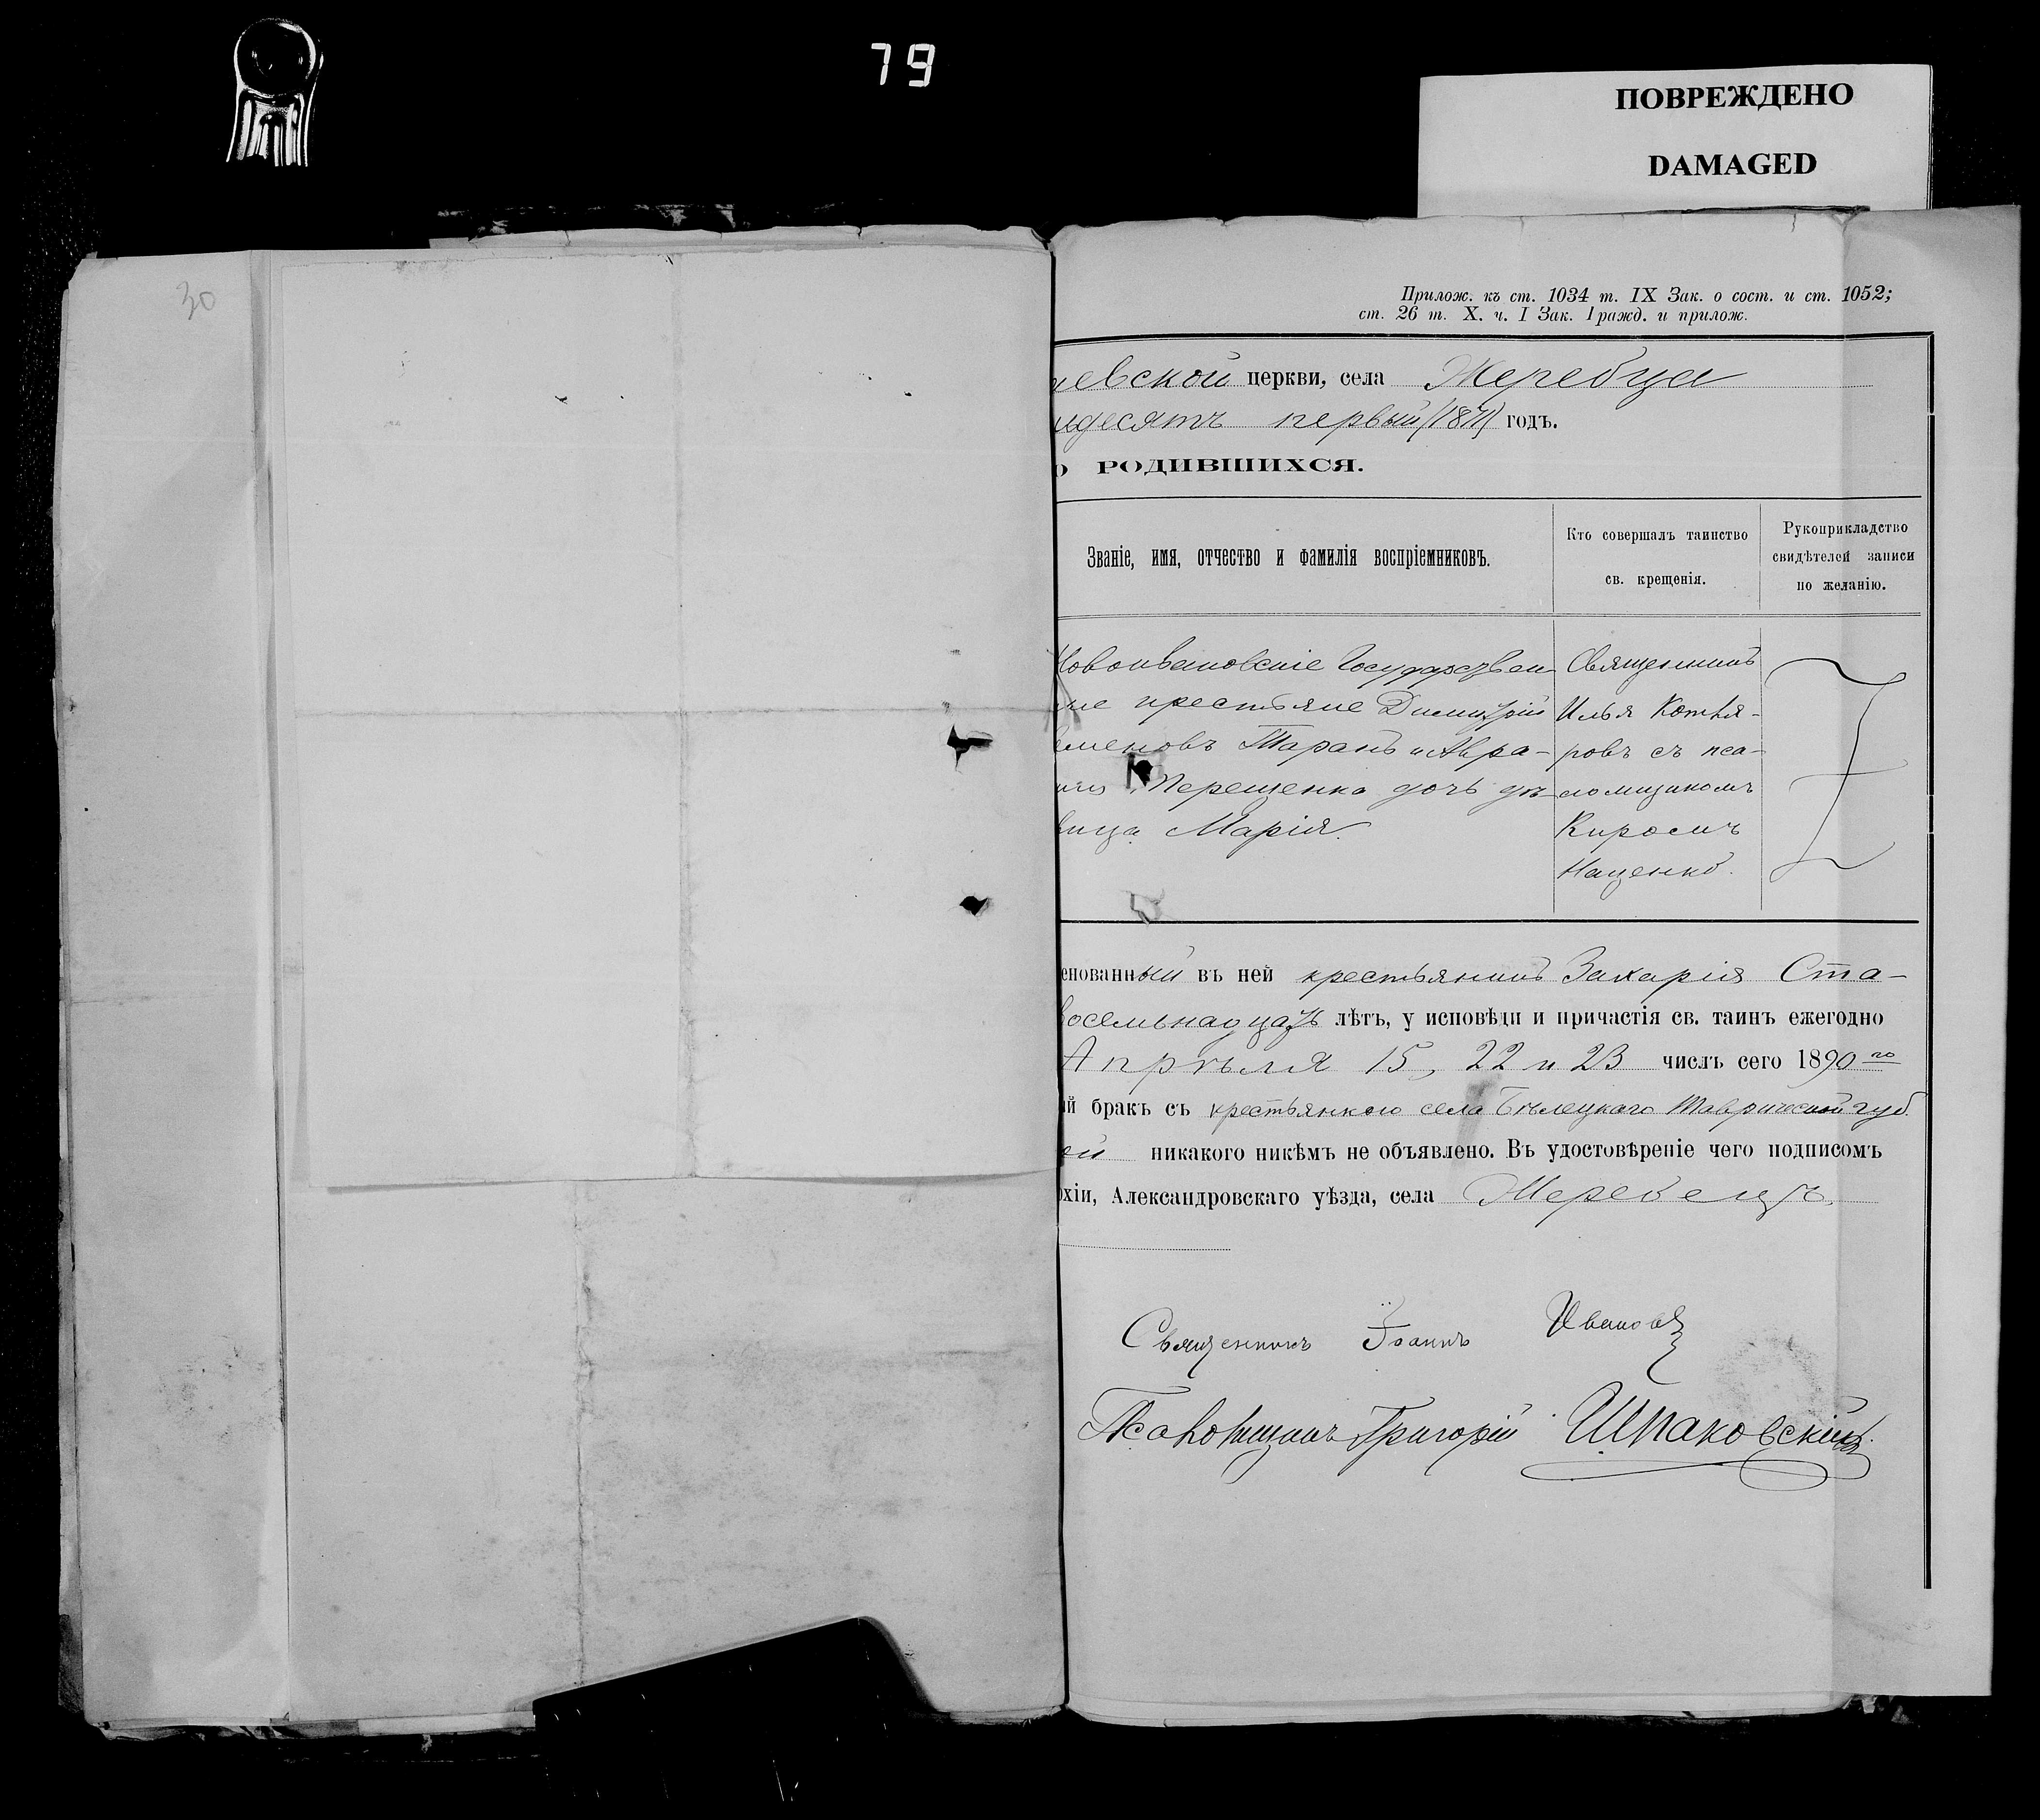 79
ПОВРЕЖДЕНО
DAMAGED
30
Прилож. къ ст. 1034 т. IX Зак. о сост. и ст. 1052;
ст. 26 т. X. ч. I Зак. Гражд. и прилож.
иевской церкви, села Жеребца
идесятъ первый (1871) годъ.
О РОДИВШИХСЯ.
Званіе, имя, отчество и фамилія воспріемниковъ.
Кто совершалъ таинство
св. крещенія.
Рукоприкладство
свидѣтелей записи
по желанію.
Новоивановскіе Государствен
ные крестьяне Димитрій
еменовъ Таранъ и Авра-
Перещенка дочь дѣ-
вица Марія.
Священникъ
Илья Котля-
ровъ съ пса-
ломщикомъ
Киромъ
Наценко.
енованный въ ней крестьянинъ Захарія Ста-
восемьнадцать лѣтъ, у исповѣди и причастія св. таинъ ежегодно
Апрѣля 15, 22 и 23 числъ сего 1890 го
ій бракъ съ крестьянкою села Бѣлецкаго Таврической губ.
ей никакого никѣмъ не объявлено. Въ удостовѣреніе чего подписомъ
рхіи, Александровскаго уѣзда, села Жеребецъ
Священникъ Іоаннъ Ивановъ
Псаломщикъ Григорій Шпаковскій